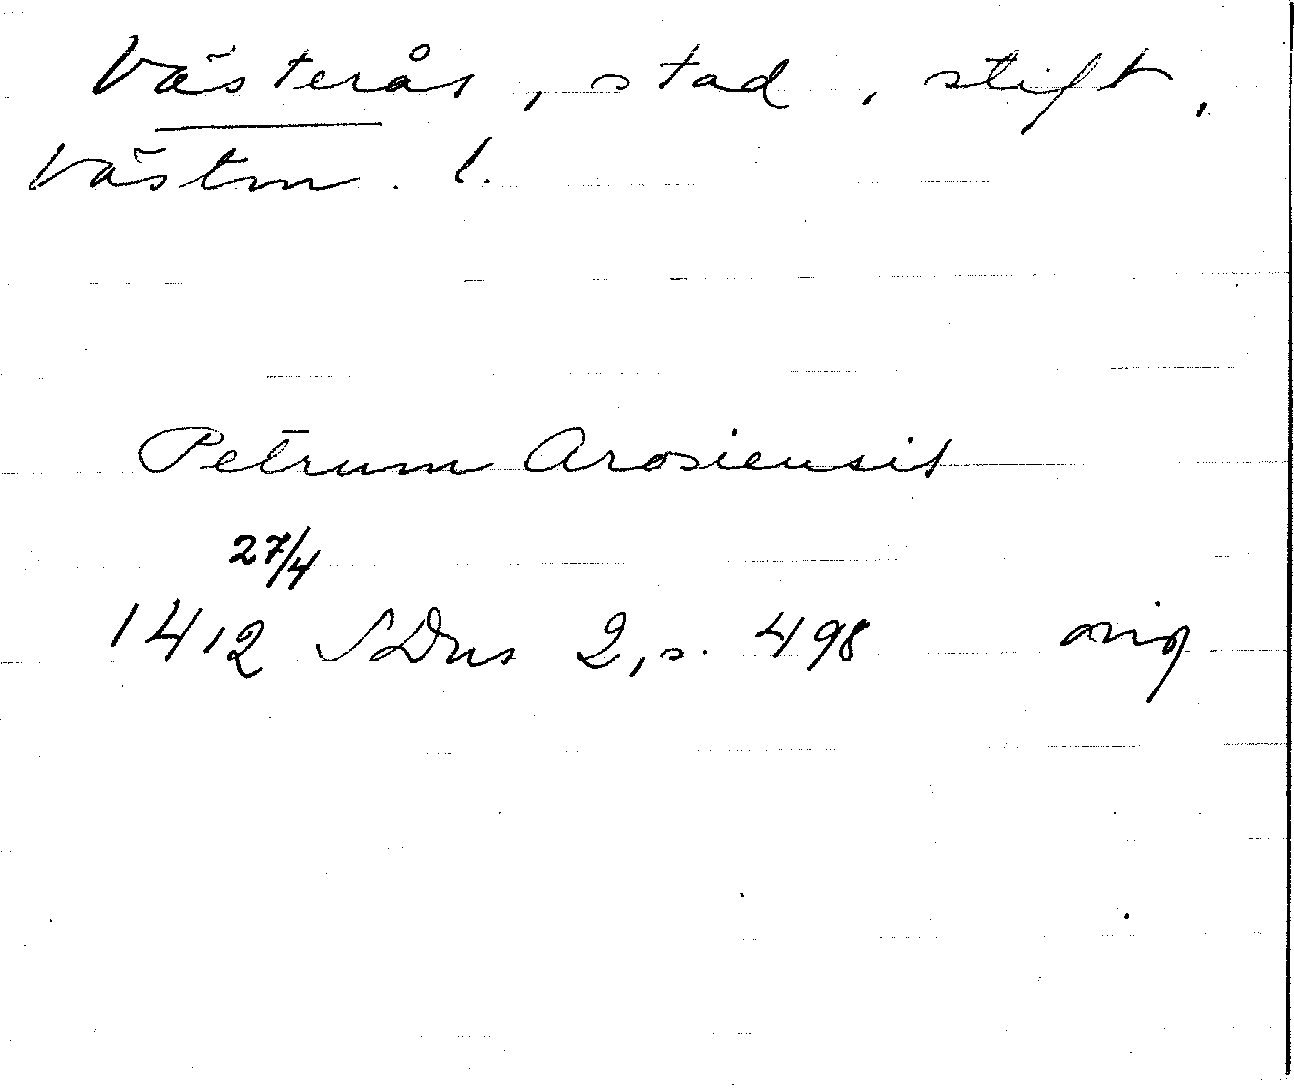 Västerås, stad, stift,
Västm. l.
Petrum Arosiensis
27/4
1412 SDns 2, s. 498 orig